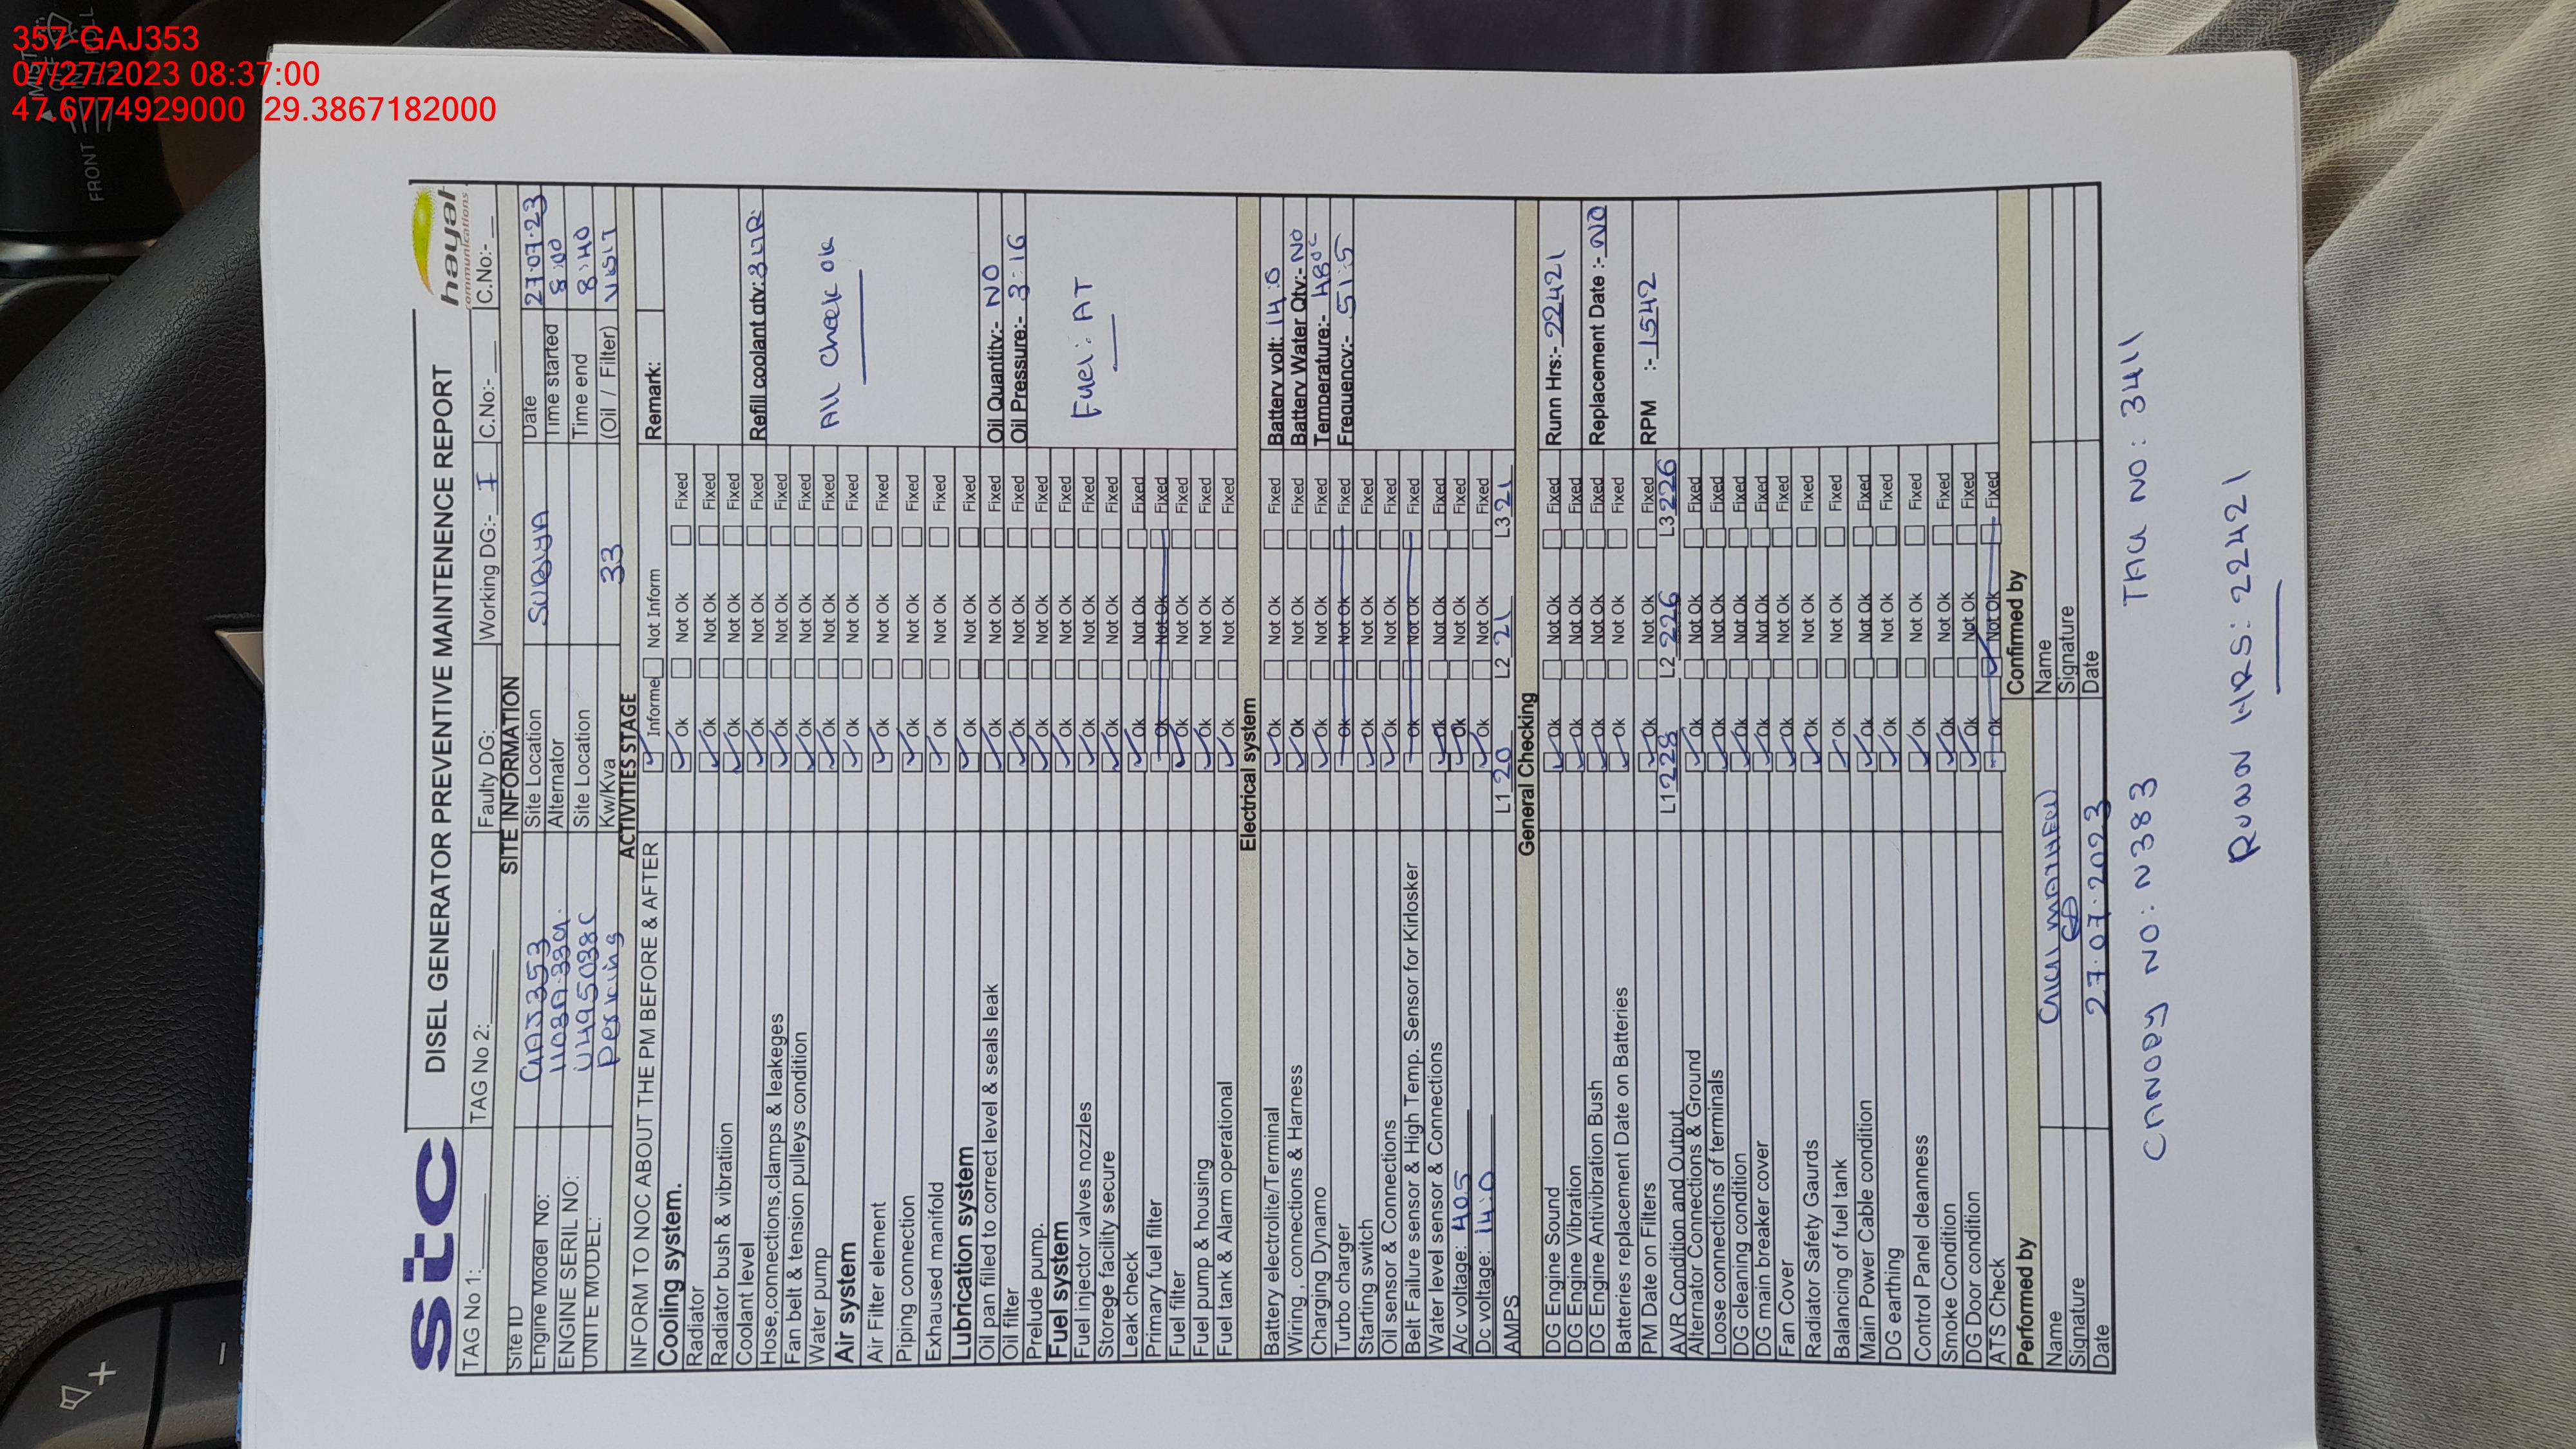 357-GAJ353
07/27/2023 08:37:00
47.6774929000 29.3867182000
stc DISEL GENERATOR PREVENTIVE MAINTENENCE REPORT hayat communications
TAG No 1: TAG No 2: Faulty DG: Working DG:- I C.No:- C.No:-
SITE INFORMATION
Site ID GAJ353 Site Location SURBYA Date 27.07.23
Engine Model No: Alternator Time started 8:00
ENGINE SERIL NO: U495038C Site Location Time end 8:40
UNITE MODEL: Perking Kw/Kva 33 (Oil / Filter) VISIT
ACTIVITIES STAGE
INFORM TO NOC ABOUT THE PM BEFORE & AFTER Informe Not Inform Remark:
Cooling system.
Radiator Ok Not Ok Fixed
Radiator bush & vibratiion Ok Not Ok Fixed
Coolant level Ok Not Ok Fixed Refill coolant qty: 3 LTR.
Hose,connections,clamps & leakeges Ok Not Ok Fixed
Fan belt & tension pulleys condition Ok Not Ok Fixed
Water pump Ok Not Ok Fixed All check ok
Air system Ok Not Ok Fixed
Air Filter element Ok Not Ok Fixed
Piping connection Ok Not Ok Fixed
Exhaused manifold Ok Not Ok Fixed
Lubrication system Ok Not Ok Fixed
Oil pan filled to correct level & seals leak Ok Not Ok Fixed Oil Quantity:- NO
Oil filter Ok Not Ok Fixed Oil Pressure:- 3:16
Prelude pump. Ok Not Ok Fixed
Fuel system Ok Not Ok Fixed
Fuel injector valves nozzles Ok Not Ok Fixed Fuel: AT
Storege facility secure Ok Not Ok Fixed
Leak check Ok Not Ok Fixed
Primary fuel filter Ok Not Ok Fixed
Fuel filter Ok Not Ok Fixed
Fuel pump & housing Ok Not Ok Fixed
Fuel tank & Alarm operational Ok Not Ok Fixed
Electrical system
Battery electrolite/Terminal Ok Not Ok Fixed Battery volt: 14.0
Wiring , connections & Harness Ok Not Ok Fixed Battery Water Qty:- NO
Charging Dynamo Ok Not Ok Fixed Temperature:- 48°C
Turbo charger Ok Not Ok Fixed Frequency:- 51:5
Starting switch Ok Not Ok Fixed
Oil sensor & Connections Ok Not Ok Fixed
Belt Failure sensor & High Temp. Sensor for Kirlosker Ok Not Ok Fixed
Water level sensor & Connections Ok Not Ok Fixed
A/c voltage: 405 Ok Not Ok Fixed
Dc voltage: 14:0 Ok Not Ok Fixed
AMPS L1 20 L2 21 L3 21
General Checking
DG Engine Sound Ok Not Ok Fixed Runn Hrs:- 22421
DG Engine Vibration Ok Not Ok Fixed
DG Engine Antivibration Bush Ok Not Ok Fixed Replacement Date :- NO
Batteries replacement Date on Batteries Ok Not Ok Fixed
PM Date on Filters Ok Not Ok Fixed RPM :- 1542
AVR Condition and Output L1 228 L2 226 L3 226
Alternator Connections & Ground Ok Not Ok Fixed
Loose connections of terminals Ok Not Ok Fixed
DG cleaning condition Ok Not Ok Fixed
DG main breaker cover Ok Not Ok Fixed
Fan Cover Ok Not Ok Fixed
Radiator Safety Gaurds Ok Not Ok Fixed
Balancing of fuel tank Ok Not Ok Fixed
Main Power Cable condition Ok Not Ok Fixed
DG earthing Ok Not Ok Fixed
Control Panel cleanness Ok Not Ok Fixed
Smoke Condition Ok Not Ok Fixed
DG Door condition Ok Not Ok Fixed
ATS Check Ok Not Ok Fixed
Performed by Confirmed by
Name MATHEW Name
Signature Signature
Date 27.07.2023 Date
CANOPY NO: N383 TAG NO: 3411
RUNN HRS: 22421
FRONT